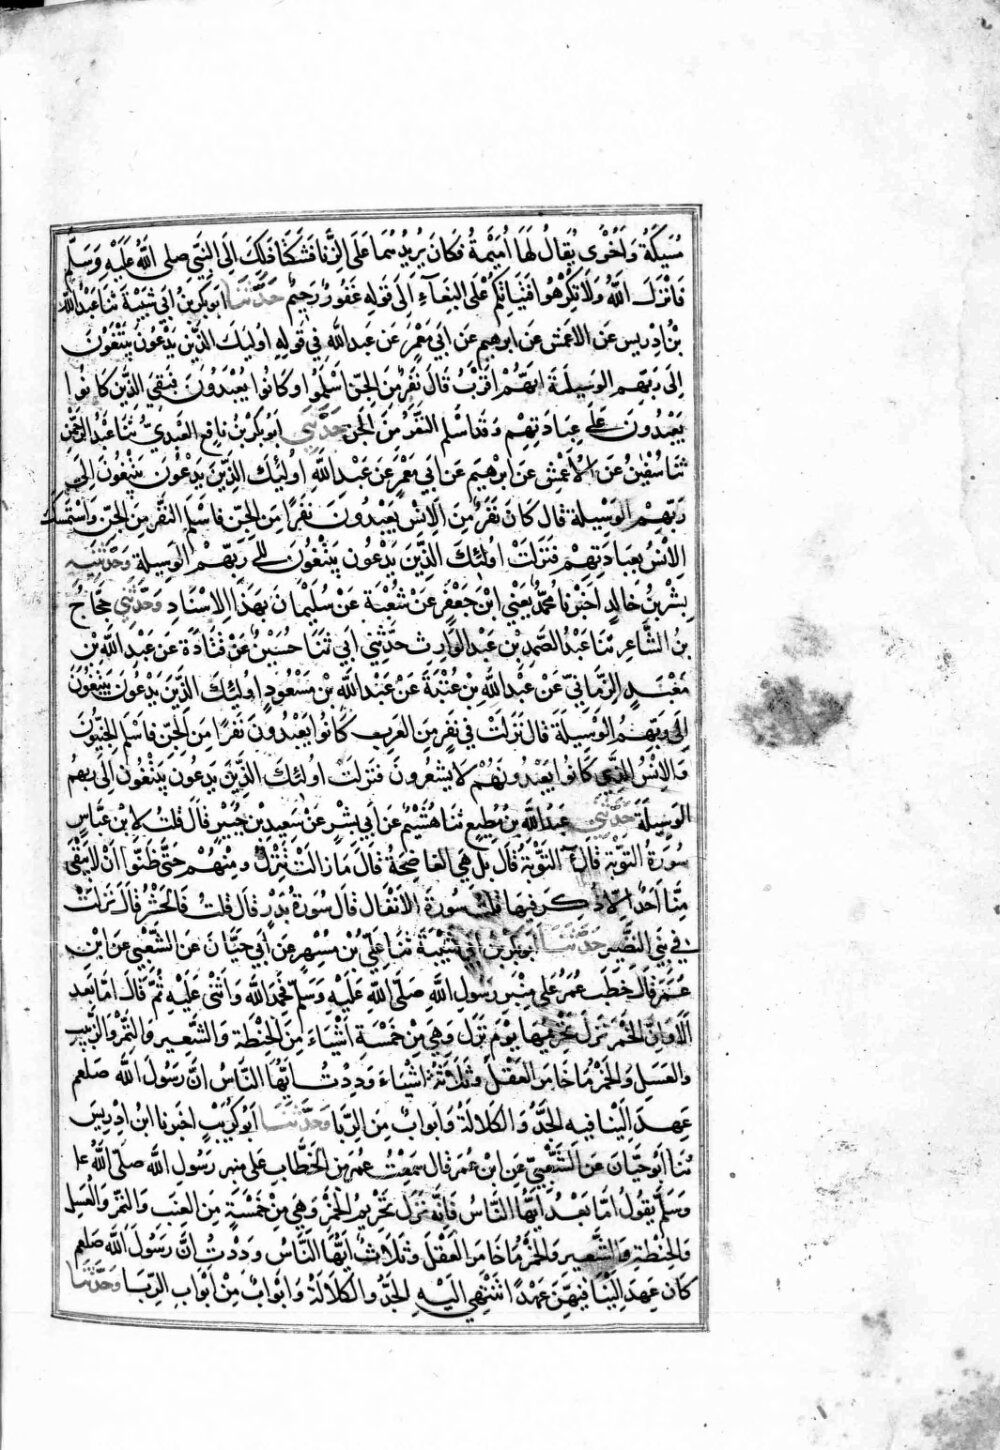 مُسَيكَةُ وَاُخْرٰى يُقَالُ لَهَا اُمَيْمَةُ فَكَانَ يُرِيدُهُمَا عَلَى الزِّنَا فَشَكَتَا ذٰلِكَ اِلَى النَّبِيِّ صلى اللّٰه عَلَيْهِ وَسَلَّم
فَاَنْزَلَ اللّٰهُ وَلَا تُكْرِهُوا فَتَيَاتِكُمْ عَلَى البِغَآءِ اِلَى قَولِهِ غَفُورٌ رَحِيمٌ حَدَّثَنَا ابوبكر بنُ ابي شَيْبَةَ ثنا عَبْدُ اللّٰه
بْنُ اِدْرِيسَ عَنِ الاَعمَشِ عَن ابرهيم عَن اَبي مَعْمَرٍ عَن عَبدِ الله في قولِهِ اُولٰئِكَ الَّذِينَ يَدْعُونَ يَبْتَغُونَ
اِلَى رَبِّهِم الوَسِيلَةَ اَيُّهُمْ اَقرَبُ قَالَ نَفَرٌ مِنَ الجِنِّ اَسْلَمُوا وَكَانُوا يُعْبَدُونَ فَبَقِيَ الَّذِينَ كَانُوا
يَعْبُدُونَ عَلَى عِبَادَتِهِم وَقَد اسْلَمَ النَّفَرُ مِنَ الجِنِّ حَدَّثَنِي اَبُوبَكْرِ بْنُ نافِعٍ العَبْدِيُّ ثَنَا عَبْدُ الرَّحْمٰنِ
ثَنَا سُفْيٰنُ عَنِ الْاَعْمَشِ عَن ابرٰهِيمَ عَن اَبي مَعْمَرٍ عَن عَبْدِ اللّٰهِ اُولٰئِكَ الَّذِينَ يَدْعُونَ يَبْتَغُونَ اِلَى
رَبِّهِمُ الوَسِيلَةَ قَالَ كَانَ نَفَرٌ مِنَ الاِنْسِ يَعْبُدُونَ نَفَرًا مِنَ الجِنِّ فَاَسْلَمَ النَّفَرُ مِنَ الجِنِّ وَاسْتَمْسَكَ
الاِنْسُ بِعِبَادَتِهِمْ فَنَزَلَتْ اُولٰئِكَ الَّذِينَ يَدْعُونَ يَبْتَغُونَ اِلى رَبِّهِمْ الوَسِيلَةَ وَحَدَّثَنِيهِ
بِشْرُ بنُ خَالِدٍ اَخْبَرَنَا مُحَمَّدٌ يَعْنِي ابْنَ جَعْفَرٍ عَنْ شُعْبَةَ عَنْ سُلَيْمَانَ بِهَذَا الاِسْنَادِ وَحَدَّثَنِي حَجَّاجُ
بْنُ الشَّاعِرِ ثَنَا عَبْدُ الصَّمَدِ بْن عَبْدِ الوَارِثِ حَدَّثَنِي ابي ثَنَا حُسَيْنٌ عَنْ قَتَادَةَ عَن عَبدِ اللّٰه بْن
مَعْبَدٍ الزِّمَّانِيِّ عَنْ عَبْدِ اللّٰهِ بْنِ عُتْبَةَ عَنْ عَبْدِ اللّٰهِ بْن مَسْعُودٍ اُولٰئِكَ الَّذِينَ يَدْعُونَ يَبْتَغُونَ
اِلَى رَبِّهِمُ الْوَسِيلَةَ قَالَ نَزَلَتْ فِي نَفَرٍ مِنَ العَرَبِ كَانُوا يَعْبُدُونَ نَفَرًا مِنَ الجِنِّ فَاَسْلَمَ الجِنِّيُّونَ
وَالاِنْسُ الَّذِينَ كَانُوا يَعْبُدُونَهُمْ لَا يَشْعُرُونَ فَنَزَلَتْ اُولٰئِكَ الَّذِينَ يَدعُونَ يَبْتَغُونَ اِلَى رَبِّهِمُ
الوَسِيلَةَ حَدَّثَنِي عَبدُ اللّٰهِ بن مُطِيعٍ ثَنَا هُشَيْمٌ عَن اَبي بِشْرٍ عَنْ سَعِيدِ بْنِ جُبَيْرٍ قَالَ قُلتُ لابْنِ عَبَّاسٍ
سُورَةُ التَّوبَةِ قَالَ آلتَّوْبَةُ قَالَ بَلْ هِيَ الفَاضِحَةُ قَالَ مَازَالَتْ تَنْزِلُ وَمِنْهُمْ حَتَّى ظَنُّوا اَنْ لَا يَبْقَى
مِنَّا اَحَدٌ اِلَّا ذُكِرَ فِيهَا قُلْتُ سُورَةُ الاَنْفَالِ قَالَ سُورَةُ بَدْرٍ قَالَ قُلْتُ فَالْحَشْرُ قَالَ نَزَلَتْ
فِي بَنِي النَّضِيرِ حَدَّثَنَا اَبُوبَكْرِ بْنُ اَبِي شَيْبَةَ ثَنَا عَلِيُّ بْنُ مُسْهِرٍ عَن اَبي حَيَّانَ عَنِ الشَّعْبِيِّ عَنِ ابْنِ
عُمَرَ قَالَ خَطَبَ عُمَرُ عَلَى مِنْبَرِ رَسُولِ اللّٰهِ صَلَّى اللّٰهُ عَلَيْهِ وَسَلَّمَ فَحَمِدَ اللّٰهَ وَاَثْنَى عَلَيْهِ ثُمَّ قَالَ اَمَّا بَعد
اَلَا وَاِنَّ الخَمْرَ نَزَلَ تَحْرِيمُهَا يَوْمَ نَزَلَ وَهِيَ مِنْ خَمْسَةِ اَشْيَاءَ مِنَ الحِنْطَةِ وَالشَّعِيرِ وَالتَّمْرِ وَالزَّبِيبِ
والعَسَلِ وَالخَمْرُ مَا خَامَرَ العَقْلَ وَثَلَاثَةُ اَشْيَاءَ وَدِدْتُ اَيُّهَا النَّاسُ اَنَّ رَسُولَ اللّٰه صَلعم
عَهِدَ اِلَيْنَا فِيهِ الجَدُّ وَالكَلَالَةُ وَاَبوابٌ مِنَ الرِّبَا وَحَدَّثَنَا اَبُو كُرَيْبٍ اخبَرَنا ابنُ ادْرِيسَ
ثَنَا ابُو حَيَّانَ عَنِ الشَّعْبِيِّ عَنِ ابْنِ عُمَرَ قَالَ سَمِعْتُ عُمَرَ بْنَ الْخَطَّابِ عَلَى مِنبر رَسُولِ اللّٰه صَلَّى اللّٰهُ عل
وَسَلَّمَ يَقُولُ اَمَّا بَعْدُ اَيُّهَا النَّاسُ فَاِنَّهُ نَزَلَ تَحْرِيمُ الخَمْرِ وَهْيَ مِنْ خَمْسَةٍ مِنَ العِنَبِ وَالتَّمْرِ وَالْعَسَلِ
وَالحِنْطَةِ وَالشَّعِيرِ وَالخَمْرُ مَا خَامَرَ العَقْلَ وَثَلَاثٌ اَيُّهَا النَّاسُ وَدِدْتُ اَنَّ رَسُولَ اللّٰه صَلعم
كَانَ عَهِدَ اِلَيْنَا فِيهِنَّ عَهْدًا نَنْتَهِي اِلَيْهِ الجَدُّ وَالكَلَالَةُ وَابْوَابٌ مِنْ اَبْوَابِ الرِّبَا وَحَدَّثَنَا